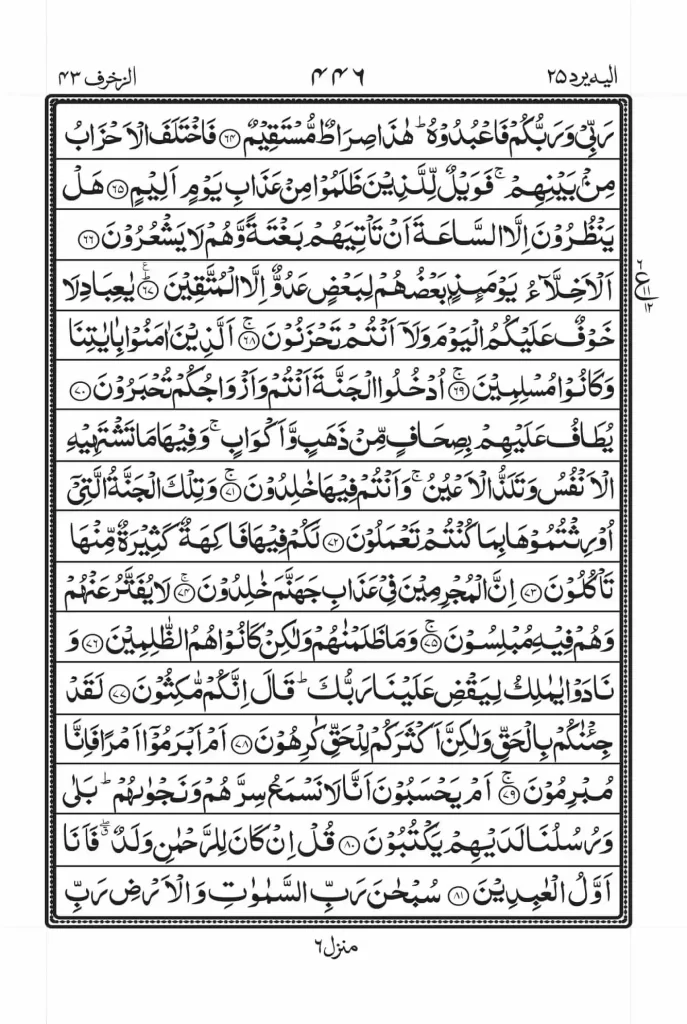 الیہ یرد ۲۵
۴۴۶
الزخرف ۴۳
رَبِّیۡ وَرَبُّکُمۡ فَاعۡبُدُوۡہُ ؕ ھٰذَا صِرَاطٌ مُّسۡتَقِیۡمٌ ﴿۶۴﴾ فَاخۡتَلَفَ الۡاَحۡزَابُ
مِنۡۢ بَیۡنِہِمۡ ۚ فَوَیۡلٌ لِّلَّذِیۡنَ ظَلَمُوۡا مِنۡ عَذَابِ یَوۡمٍ اَلِیۡمٍ ﴿۶۵﴾ ہَلۡ
یَنۡظُرُوۡنَ اِلَّا السَّاعَۃَ اَنۡ تَاۡتِیَہُمۡ بَغۡتَۃً وَّہُمۡ لَا یَشۡعُرُوۡنَ ﴿۶۶﴾
اَلۡاَخِلَّآءُ یَوۡمَئِذٍۭ بَعۡضُہُمۡ لِبَعۡضٍ عَدُوٌّ اِلَّا الۡمُتَّقِیۡنَ ﴿۶۷﴾ یٰعِبَادِ لَا
۶
ع
۱۱
۱۲
خَوۡفٌ عَلَیۡکُمُ الۡیَوۡمَ وَلَاۤ اَنۡتُمۡ تَحۡزَنُوۡنَ ﴿۶۸﴾ۚ اَلَّذِیۡنَ اٰمَنُوۡا بِاٰیٰتِنَا
وَکَانُوۡا مُسۡلِمِیۡنَ ﴿۶۹﴾ۚ اُدۡخُلُوا الۡجَنَّۃَ اَنۡتُمۡ وَاَزۡوَاجُکُمۡ تُحۡبَرُوۡنَ ﴿۷۰﴾
یُطَافُ عَلَیۡہِمۡ بِصِحَافٍ مِّنۡ ذَہَبٍ وَّاَکۡوَابٍ ۚ وَفِیۡہَا مَا تَشۡتَہِیۡہِ
الۡاَنۡفُسُ وَتَلَذُّ الۡاَعۡیُنُ ۚ وَاَنۡتُمۡ فِیۡہَا خٰلِدُوۡنَ ﴿۷۱﴾ۚ وَتِلۡکَ الۡجَنَّۃُ الَّتِیۡۤ
اُوۡرِثۡتُمُوۡہَا بِمَا کُنۡتُمۡ تَعۡمَلُوۡنَ ﴿۷۲﴾ لَکُمۡ فِیۡہَا فَاکِہَۃٌ کَثِیۡرَۃٌ مِّنۡہَا
تَاۡکُلُوۡنَ ﴿۷۳﴾ اِنَّ الۡمُجۡرِمِیۡنَ فِیۡ عَذَابِ جَہَنَّمَ خٰلِدُوۡنَ ﴿۷۴﴾ۚ لَا یُفَتَّرُ عَنۡہُمۡ
وَہُمۡ فِیۡہِ مُبۡلِسُوۡنَ ﴿۷۵﴾ۚ وَمَا ظَلَمۡنٰہُمۡ وَلٰکِنۡ کَانُوۡا ہُمُ الظّٰلِمِیۡنَ ﴿۷۶﴾ وَ
نَادَوۡا یٰمٰلِکُ لِیَقۡضِ عَلَیۡنَا رَبُّکَ ؕ قَالَ اِنَّکُمۡ مّٰکِثُوۡنَ ﴿۷۷﴾ لَقَدۡ
جِئۡنٰکُمۡ بِالۡحَقِّ وَلٰکِنَّ اَکۡثَرَکُمۡ لِلۡحَقِّ کٰرِہُوۡنَ ﴿۷۸﴾ اَمۡ اَبۡرَمُوۡۤا اَمۡرًا فَاِنَّا
مُبۡرِمُوۡنَ ﴿۷۹﴾ۚ اَمۡ یَحۡسَبُوۡنَ اَنَّا لَا نَسۡمَعُ سِرَّہُمۡ وَنَجۡوٰىہُمۡ ؕ بَلٰی
وَرُسُلُنَا لَدَیۡہِمۡ یَکۡتُبُوۡنَ ﴿۸۰﴾ قُلۡ اِنۡ کَانَ لِلرَّحۡمٰنِ وَلَدٌ ٭ۖ فَاَنَا
اَوَّلُ الۡعٰبِدِیۡنَ ﴿۸۱﴾ سُبۡحٰنَ رَبِّ السَّمٰوٰتِ وَالۡاَرۡضِ رَبِّ
منزل ۶